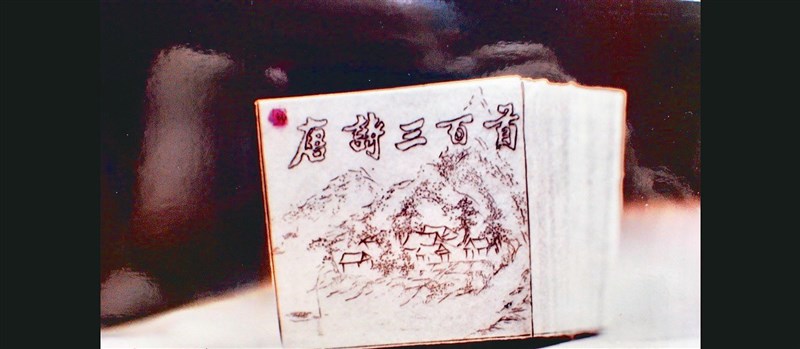 唐詩三百首